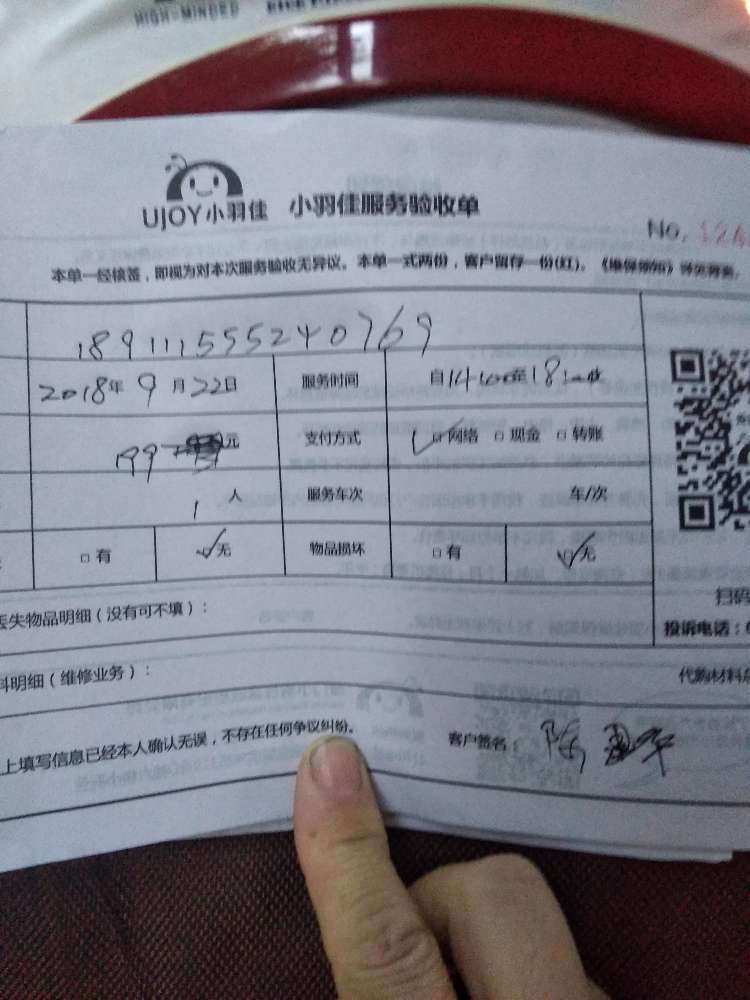 HIGH-MINDED
UJOY小羽佳 小羽佳服务验收单
No.
本单一经核签，即视为对本次服务验收无异议。本单一式两份，客户留存一份(红)。
189111555240769
2018年9月22日 服务时间 自14:00至18:00
199 元 支付方式 ☑网络 □现金 □转账
1人 服务车次 车/次
□有 ☑无 物品损坏 □有 ☑无
扫码
丢失物品明细（没有可不填）： 投诉电话：
料明细（维修业务）： 代购材料总
上填写信息已经本人确认无误，不存在任何争议纠纷。 客户签名：陈